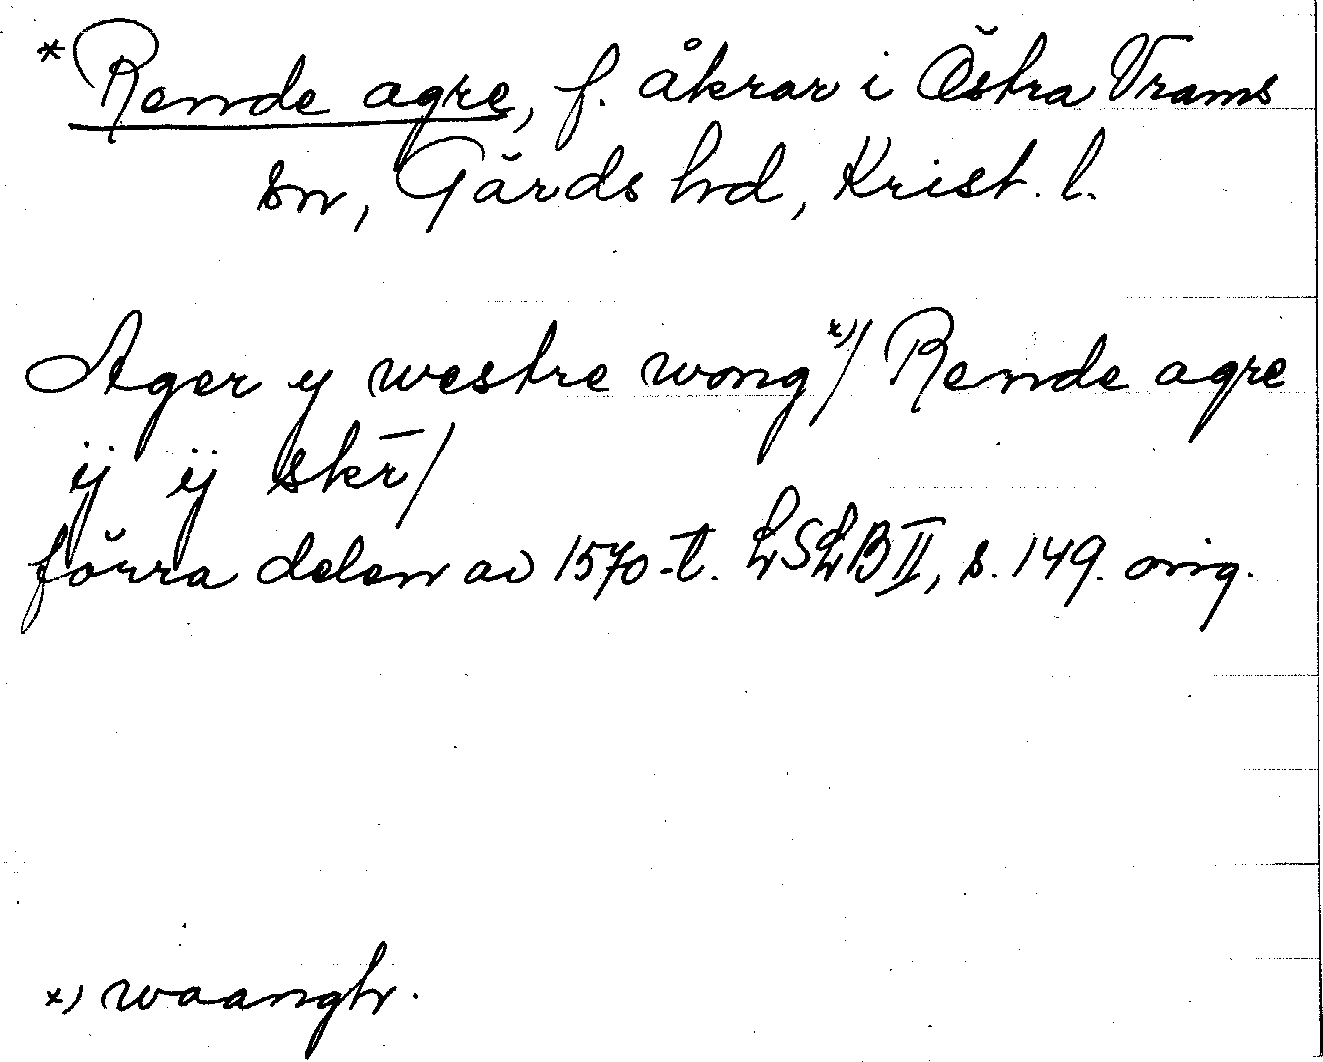 *Rende agre, f. åkrar i Östra Vrams
sn, Gärds hd, Krist. l.
Ager y westre wong x)/ Rende agre
ÿ ÿ skr̄/
förra delen av 1570-t. LSLB II, s. 149. orig.
x) waangh.